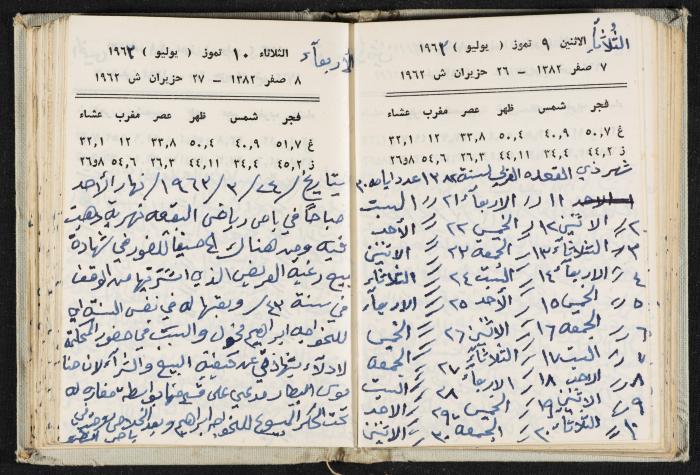 الثُلاثاً
الاثنين ٩ تموز ( يوليو ) ١٩٦٣
٧ صفر ١٣٨٢ – ٢٦ حزيران ش ١٩٦٢
فجر شمس ظهر عصر مغرب عشاء
غ ٥٠,٧ ٤٠,٩ ٥٠,٤ ٣٣,٨ ١٢ ٣٢,١
ز ٤٤,٢ ٣٤,٤ ٤٤,١١ ٢٦,٣ ٥٤,٦ ٢٦و٨
شهر ذي القعدة لسنة ١٣٨٢ عدد ايامه ٣٠
١ الاحد ١١ // الاربعاء ٢١ // السبت
٢ // الاثنين ١٢ // الخميس ٢٢ // الأحد
٣ // الثلاثاء ١٣ // الجمعة ٢٣ // الاثنين
٤ // الاربعاء ١٤ // السبت ٢٤ // الثلاثاء
٥ // الخميس ١٥ // الأحد ٢٥ // الاربعاء
٦ // الجمعة ١٦ // الاثنين ٢٦ // الخميس
٧ // السبت ١٧ // الثلاثاء ٢٧ // الجمعة
٨ // الاحد ١٨ // الاربعاء ٢٨ // السبت
٩ // الاثنين ١٩ // الخميس ٢٩ // الاحد
١٠ // الثلاثاء ٢٠ // الجمعة ٣٠ // الاثنين
الأربعاء
الثلاثاء ١٠ تموز ( يوليو ) ١٩٦٣
٨ صفر ١٣٨٢ – ٢٧ حزيران ش ١٩٦٢
فجر شمس ظهر عصر مغرب عشاء
غ ٥١,٧ ٤٠,٩ ٥٠,٤ ٣٣,٨ ١٢ ٣٢,١
ز ٤٥,٢ ٣٤,٤ ٤٤,١١ ٢٦,٣ ٥٤,٦ ٢٦و٨
بتاريخ / ٢٤ / ٣ / ١٩٦٣ / نهار الأحد
صباحاً في باص رياض البقعه ذهبت
فيه ومن هناك الى للحضور في شهادة
بيع رغبه العريض الذي اشترتها من الوقف
في سنة ٤٣ / وبقتها له في نفس السنة اي
للخواجه ابراهيم نخول والبيت في حضور المحكمة
لادلاء شهادتي عن كيفية البيع والشراء لان حنا
موسى البيطار مدعي على
تحت الحكر للخواجه ابراهيم وبعد
باص